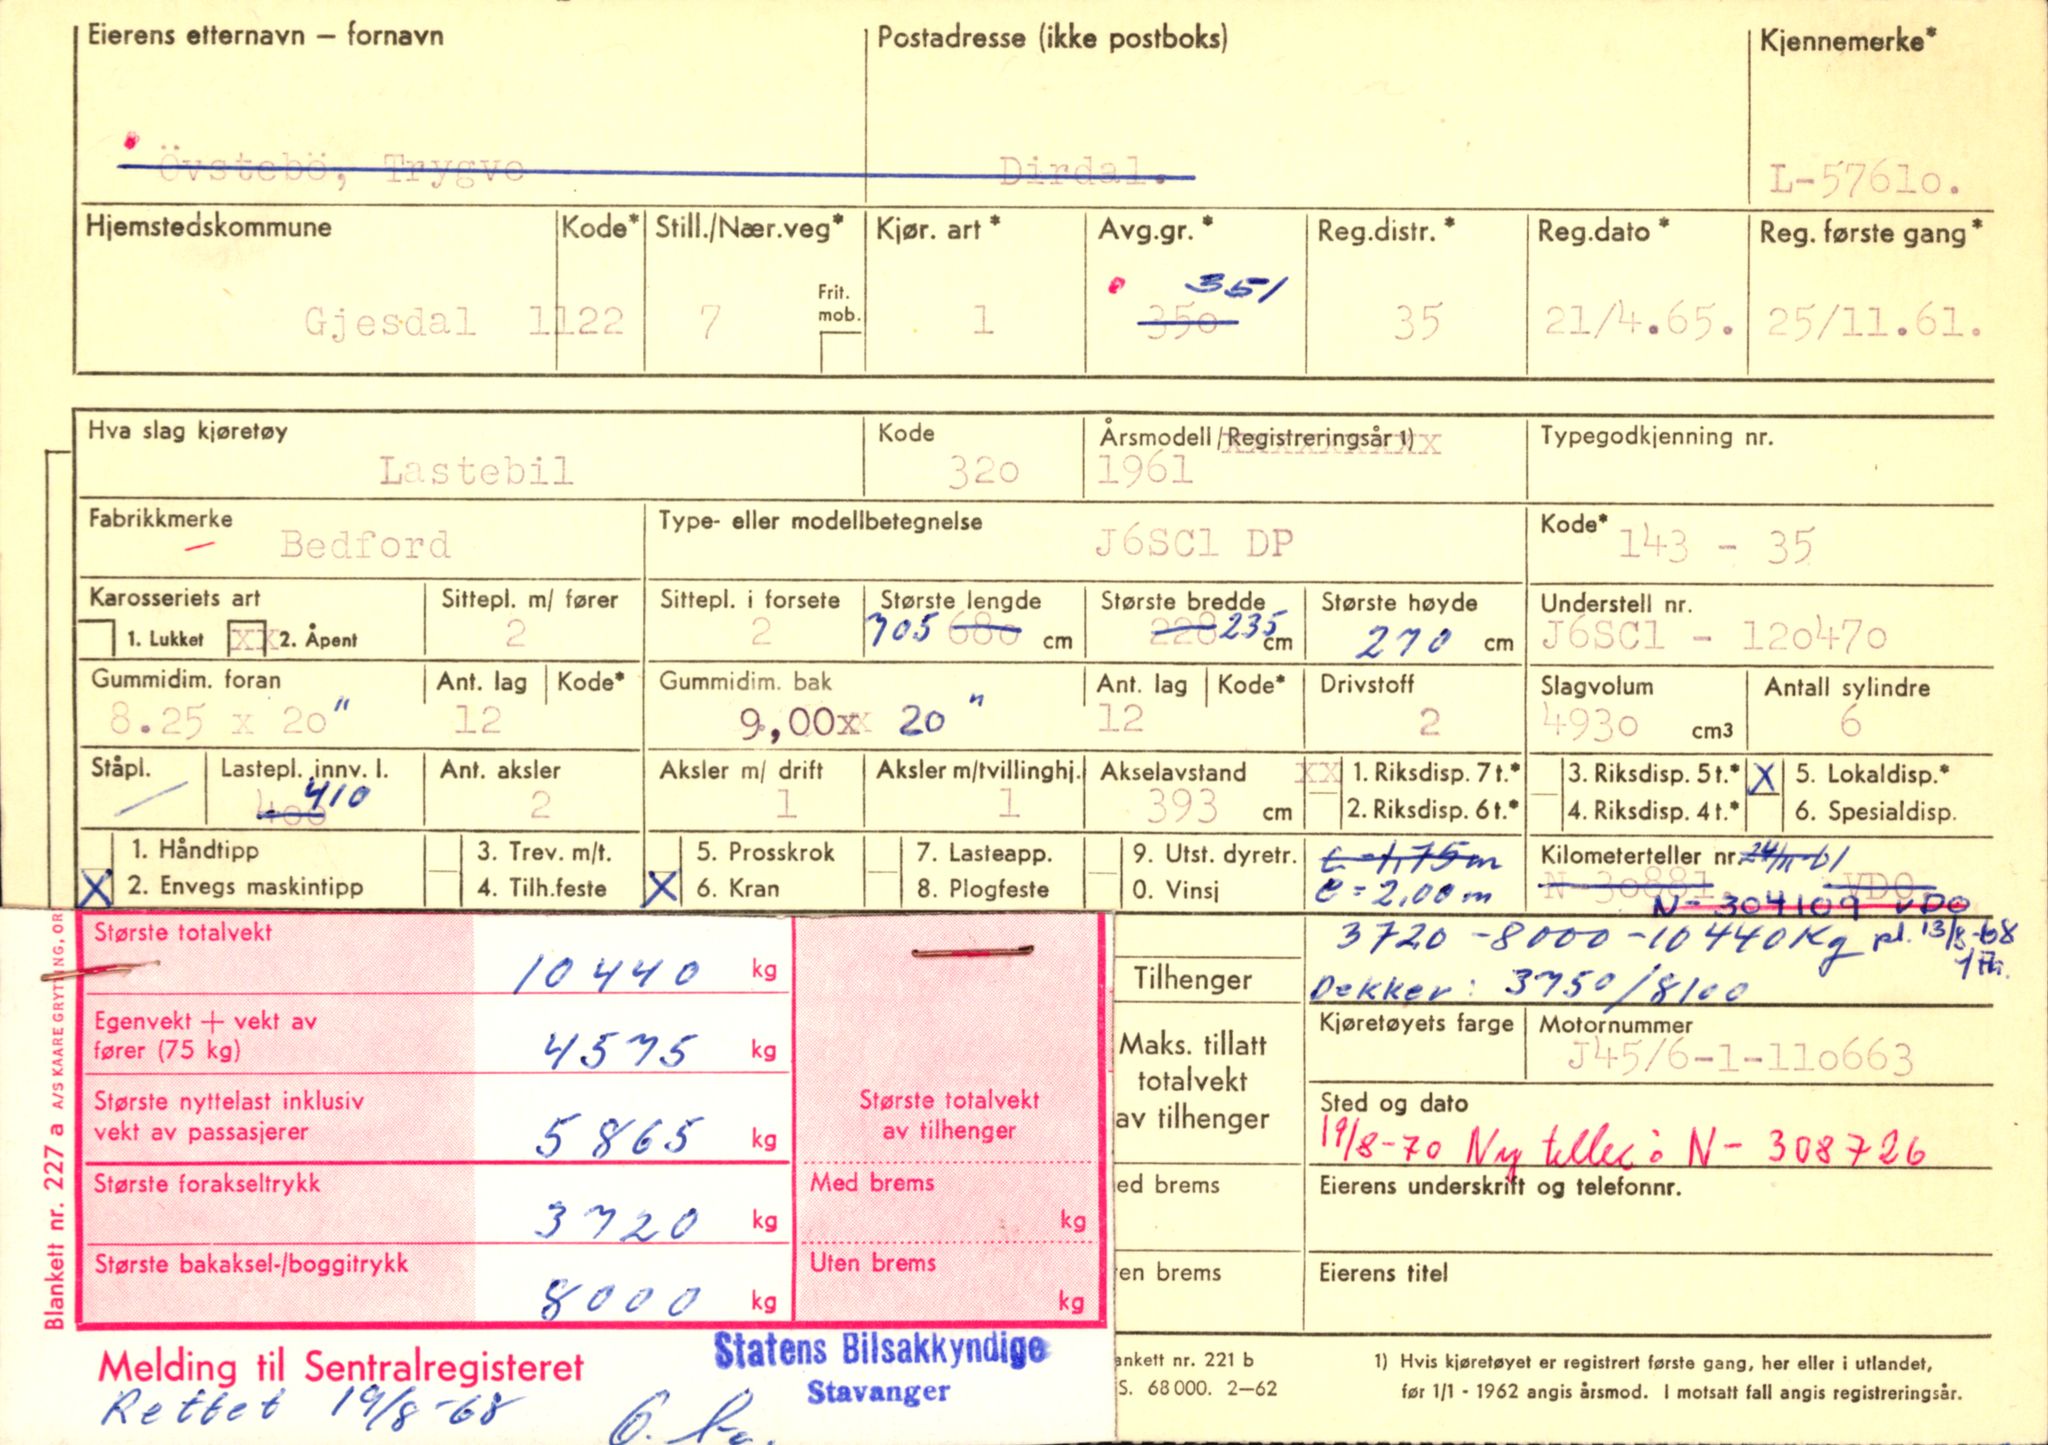 Eierens etternavn – fornavn
Postadresse (ikke postboks)
Kjennemerke*
Övstebö, Trygve
Dirdal.
L-57610.
Hjemstedskommune
Kode*
Still./Nær.veg*
Kjør. art*
Avg.gr.*
Reg.distr.*
Reg.dato*
Reg. første gang*
351
Gjesdal
1122
7
Frit. mob.
1
350
35
21/4.65.
25/11.61.
Hva slag kjøretøy
Kode
Årsmodell/Registreringsår 1)
Typegodkjenning nr.
Lastebil
320
1961
Fabrikkmerke
Type- eller modellbetegnelse
Kode*
Bedford
J6SC1 DP
143 - 35
Karosseriets art
Sittepl. m/ fører
Sittepl. i forsete
Største lengde
Største bredde
Største høyde
Understell nr.
1. Lukket
xx 2. Åpent
2
2
705 680 cm
228 235 cm
270 cm
J6SC1 - 120470
Gummidim. foran
Ant. lag
Kode*
Gummidim. bak
Ant. lag
Kode*
Drivstoff
Slagvolum
Antall sylindre
8.25 x 20"
12
9,00xx 20"
12
2
4930 cm3
6
Ståpl.
Lastepl. innv. l.
Ant. aksler
Aksler m/ drift
Aksler m/tvillinghj.
Akselavstand
xx 1. Riksdisp. 7 t.*
3. Riksdisp. 5 t.*
X 5. Lokaldisp.*
400 410
2
1
1
393 cm
2. Riksdisp. 6 t.*
4. Riksdisp. 4 t.*
6. Spesialdisp.
1. Håndtipp
3. Trev. m/t.
5. Prosskrok
7. Lasteapp.
9. Utst. dyretr.
Kilometerteller nr. 24/11-61
X 2. Envegs maskintipp
4. Tilh.feste
X 6. Kran
8. Plogfeste
0. Vinsj
e = 1,75 m
e = 2,00 m
N-30881. VDO
N-304109 VDO
Største totalvekt
10440 kg
3720-8000-10440 Kg pl. 13/8-68
Tilhenger
Dekker: 3750/8100
Egenvekt + vekt av
fører (75 kg)
4575 kg
Maks. tillatt
totalvekt
av tilhenger
Kjøretøyets farge
Motornummer
J45/6-1-110663
Største nyttelast inklusiv
vekt av passasjerer
5865 kg
Største totalvekt
av tilhenger
Sted og dato
19/8-70 Ny teller: N-308726
Største forakseltrykk
3720 kg
Med brems
kg
ed brems
Eierens underskrift og telefonnr.
Største bakaksel-/boggitrykk
8000 kg
Uten brems
kg
en brems
Eierens titel
Blankett nr. 227 a A/S KAARE GRYTTING, OR
Melding til Sentralregisteret
Rettet 19/8-68
Statens Bilsakkyndige
Stavanger
ankett nr. 221 b
S. 68 000. 2–62
1) Hvis kjøretøyet er registrert første gang, her eller i utlandet,
før 1/1 - 1962 angis årsmod. I motsatt fall angis registreringsår.